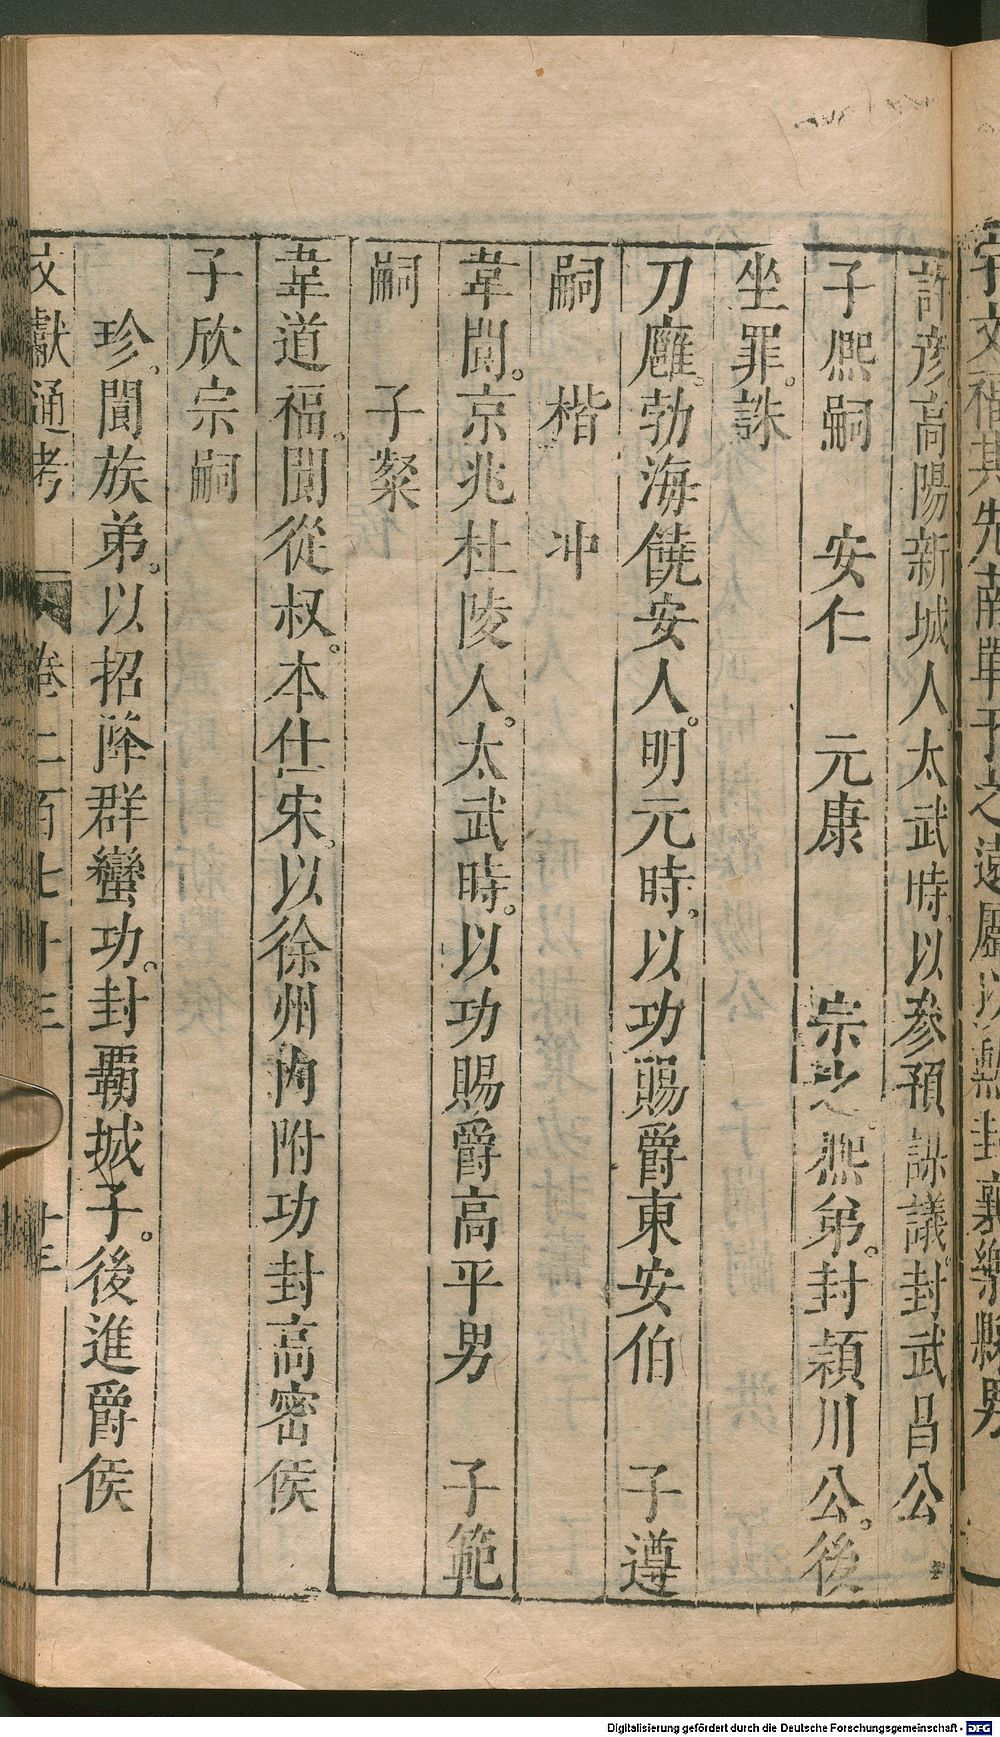 宇文福其先南單于之遠屬以勳封襄樂縣男
許彥。高陽新城人太武時。以參預謀議。封武昌公
子熙嗣　安仁　元康　宗之。熙弟。封潁川公。後
坐罪。誅
刀雍。勃海饒安人。明元時。以功賜爵東安伯　子遵
嗣　楷　冲
韋閬。京兆杜陵人。太武時。以功賜爵高平男　子範
嗣　子粲
韋道福。閬從叔。本仕宋。以徐州內附功封高密侯
子欣宗嗣
珍。閬族弟。以招降群蠻功。封霸城子。後進爵侯
文獻通考　卷二百七十三　十三
Digitalisierung gefördert durch die Deutsche Forschungsgemeinschaft - DFG